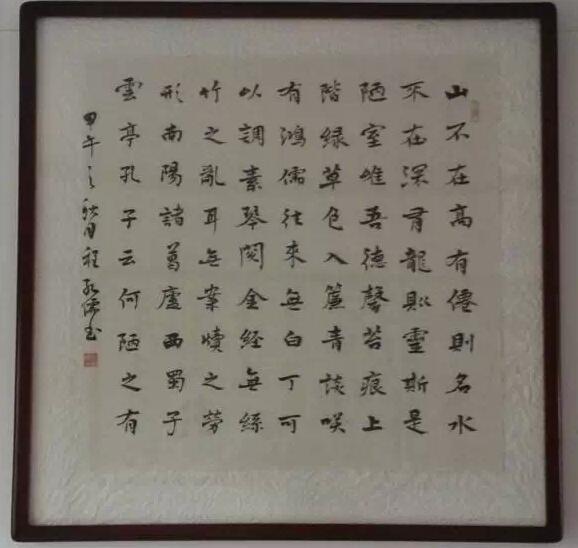 山不在高有僊則名水
不在深有龍則靈斯是
陋室惟吾德馨苔痕上
階綠草色入簾青談咲
有鴻儒往來無白丁可
以調素琴閱金經無絲
竹之亂耳無案牘之勞
形南陽諸葛廬西蜀子
雲亭孔子云何陋之有
甲午之秋月程书